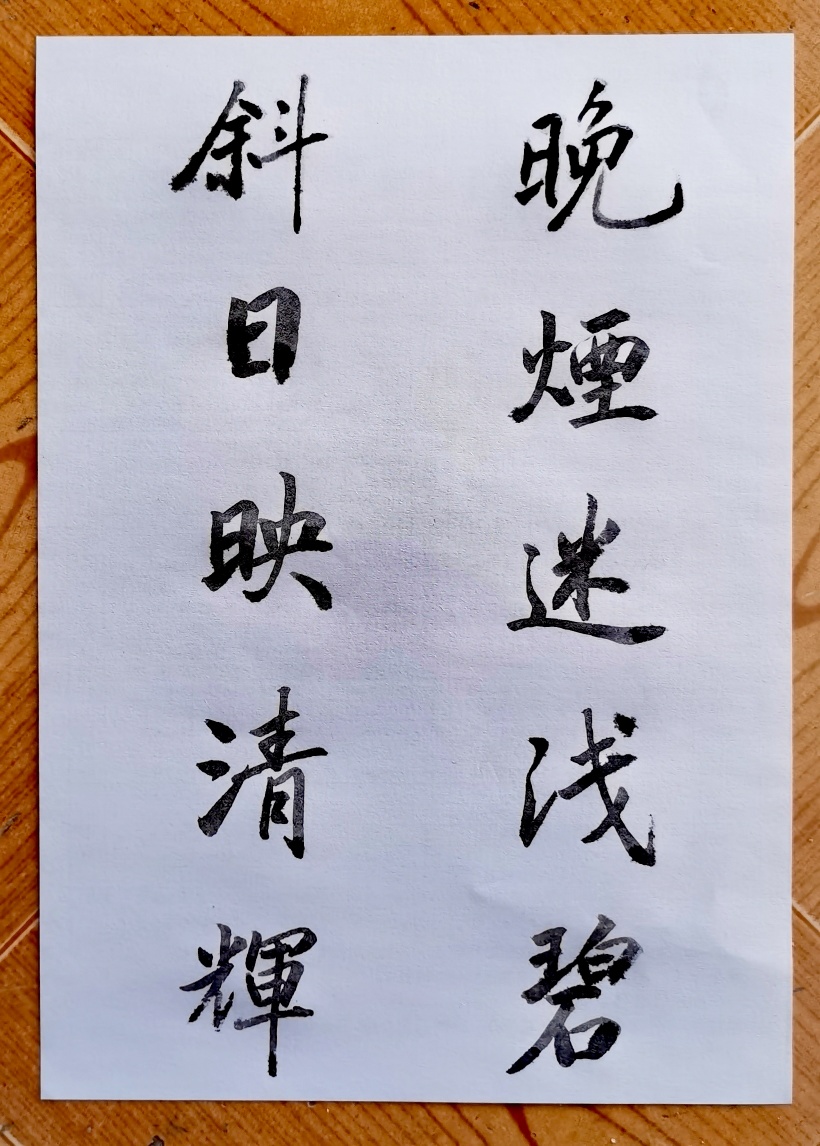 晚煙迷浅碧
斜日映清輝